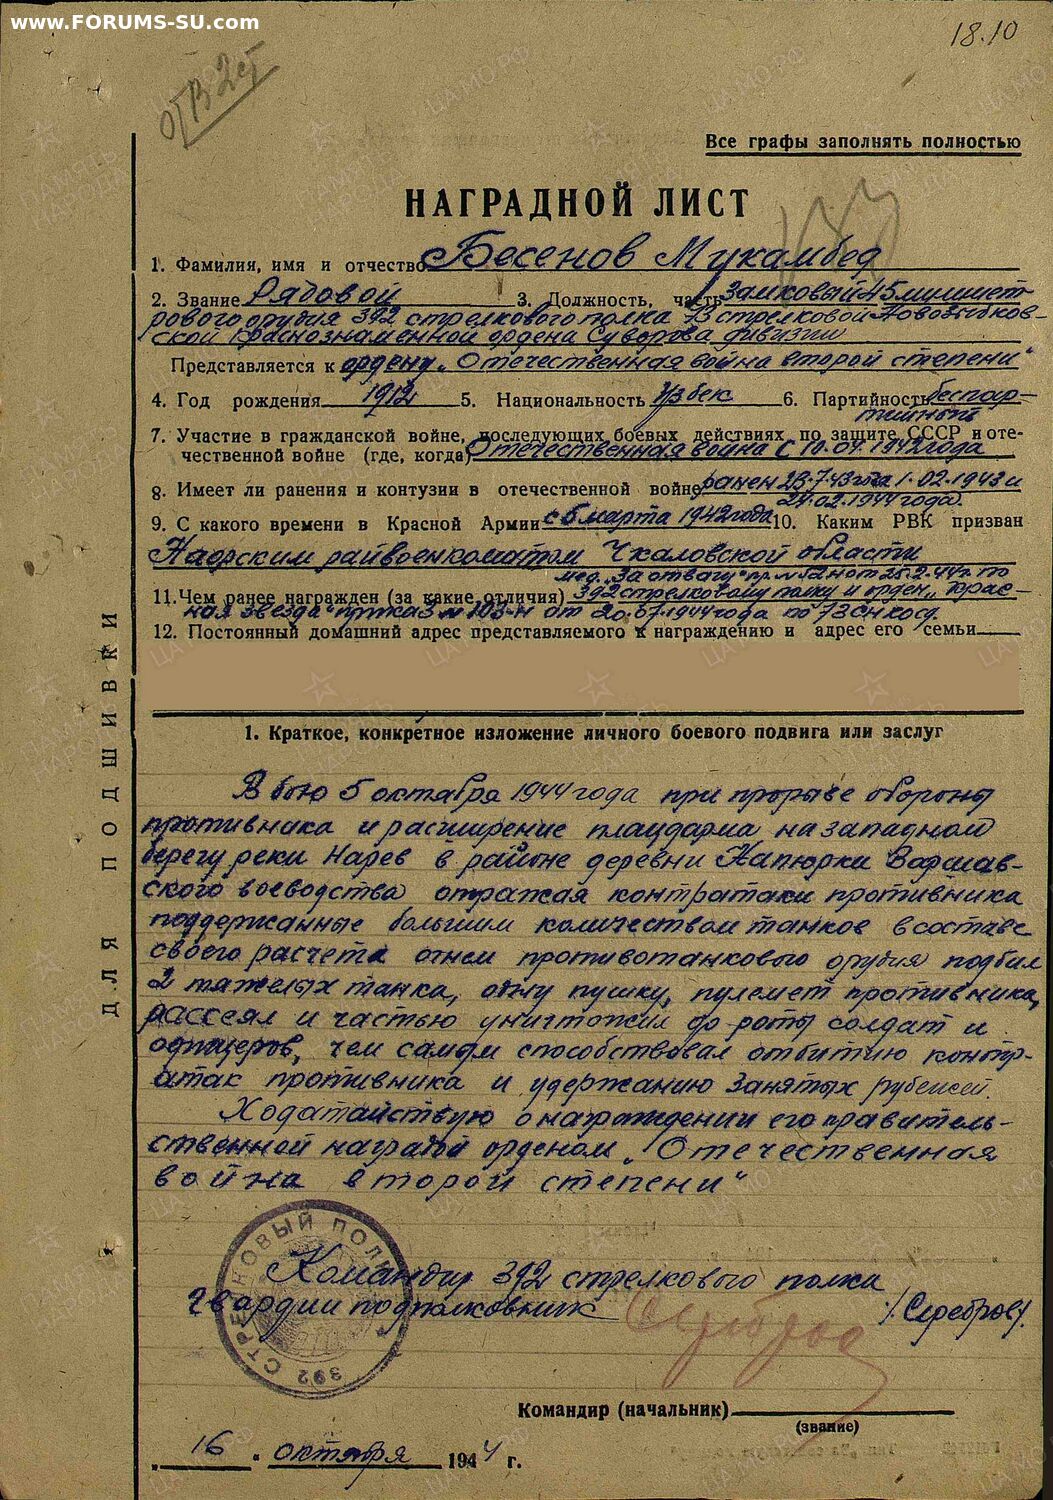 www.FORUMS-SU.com
18.10
ОТВ 2 ст
Все графы заполнять полностью
НАГРАДНОЙ ЛИСТ
1. Фамилия, имя и отчество Бесенов Мукамбед
2. Звание Рядовой 3. Должность, часть Замковый 45 миллимет-
рового орудия 392 стрелкового полка 73 стрелковой Новозыбков-
ской Краснознаменной ордена Суворова дивизии
Представляется к ордену „Отечественная война второй степени"
4. Год рождения 1912 5. Национальность Узбек 6. Партийность беспар-
тийный
7. Участие в гражданской войне, последующих боевых действиях по защите СССР и оте-
чественной войне (где, когда) Отечественная война с 10.04.1942 года
8. Имеет ли ранения и контузии в отечественной войне ранен 28.7.43 года 1.02.1943 и
24.02.1944 года.
9. С какого времени в Красной Армии с 5 марта 1942 года 10. Каким РВК призван
райвоенкоматом Чкаловской области
мед. „За отвагу" пр. № 52н от 25.2.44г. по
11. Чем ранее награжден (за какие отличия) 392 стрелковому полку и орден „Крас-
ная звезда" приказ № 103-н от 20.07.1944 года по 73 СНКОСД.
12. Постоянный домашний адрес представляемого к награждению и адрес его семьи
ДЛЯ ПОДШИВКИ
1. Краткое, конкретное изложение личного боевого подвига или заслуг
В бою 5 октября 1944 года при прорыве обороны
противника и расширение плацдарма на западном
берегу реки Нарев в районе деревни Напюрки Варшав-
ского воеводства отражая контратаки противника
поддержанные большим количеством танков в составе
своего расчета огнем противотанкового орудия подбил
2 тяжелых танка, одну пушку, пулемет противника,
рассеял и частью уничтожил до роты солдат и
офицеров, чем самым способствовал отбитию контр-
атак противника и удержанию занятых рубежей.
Ходатайствую о награждении его правитель-
ственной наградой орденом „Отечественная
война второй степени"
392 СТРЕЛКОВЫЙ ПОЛК
Командир 392 стрелкового полка
Гвардии подполковник Серебров /Серебров/.
Командир (начальник)
(звание)
„16" октября 1944 г.